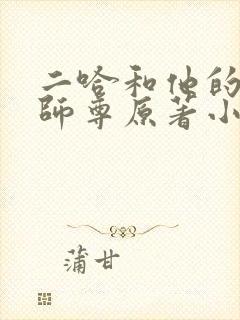 二哈和他的
師尊原著小
蒲甘